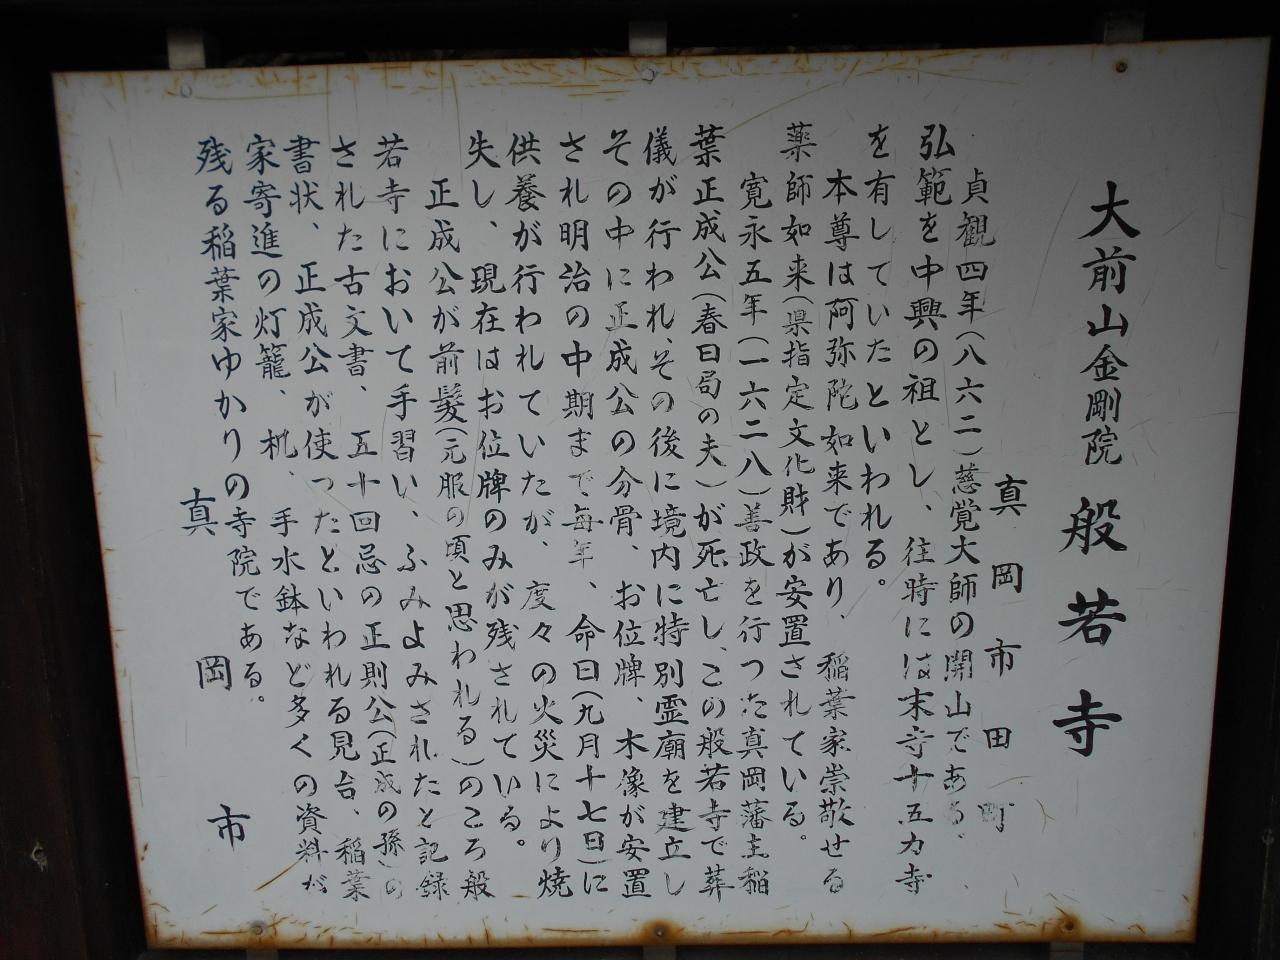 大前山金剛院 般若寺
真岡市田町
貞観四年(八六二)慈覚大師の開山である、
弘範を中興の祖とし、往時には末寺十五カ寺
を有していたといわれる。
本尊は阿弥陀如来であり、稲葉家崇敬せる
薬師如来(県指定文化財)が安置されている。
寛永五年(一六二八)善政を行つた真岡藩主稲
葉正成公(春日局の夫)が死亡し、この般若寺で葬
儀が行われ、その後に境内に特別霊廟を建立し
その中に正成公の分骨、お位牌、木像が安置
され明治の中期まで毎年、命日(九月十七日)に
供養が行われていたが、度々の火災により焼
失し、現在はお位牌のみが残されている。
正成公が前髪(元服の頃と思われる)のころ般
若寺において手習い、ふみよみされたと記録
された古文書、五十回忌の正則公(正成の孫)の
書状、正成公が使ったといわれる見台、稲葉
家寄進の灯籠、机、手水鉢など多くの資料が
残る稲葉家ゆかりの寺院である。
真岡市